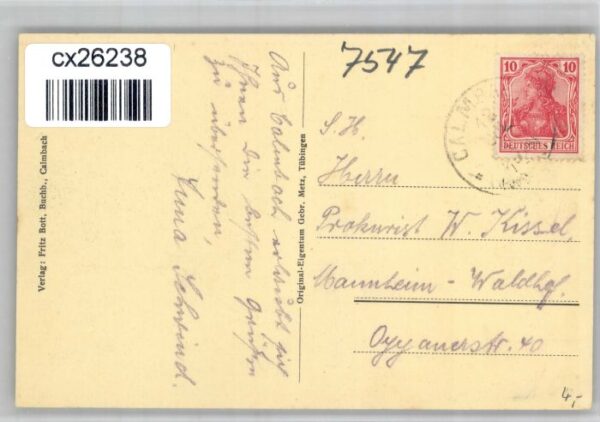 cx26238
7547
10 10
DEUTSCHES REICH
CALMBACH
S. H.
Herrn
Prokurist W. Kissel,
Mannheim - Waldhof.
Oppauerstr. 40
4,-
Aus Calmbach erlaubt sich
Ihnen die besten Grüßen
zu übersenden,
Schwind.
Original-Eigentum Gebr. Metz, Tübingen
Verlag: Fritz Bott, Buchb., Calmbach